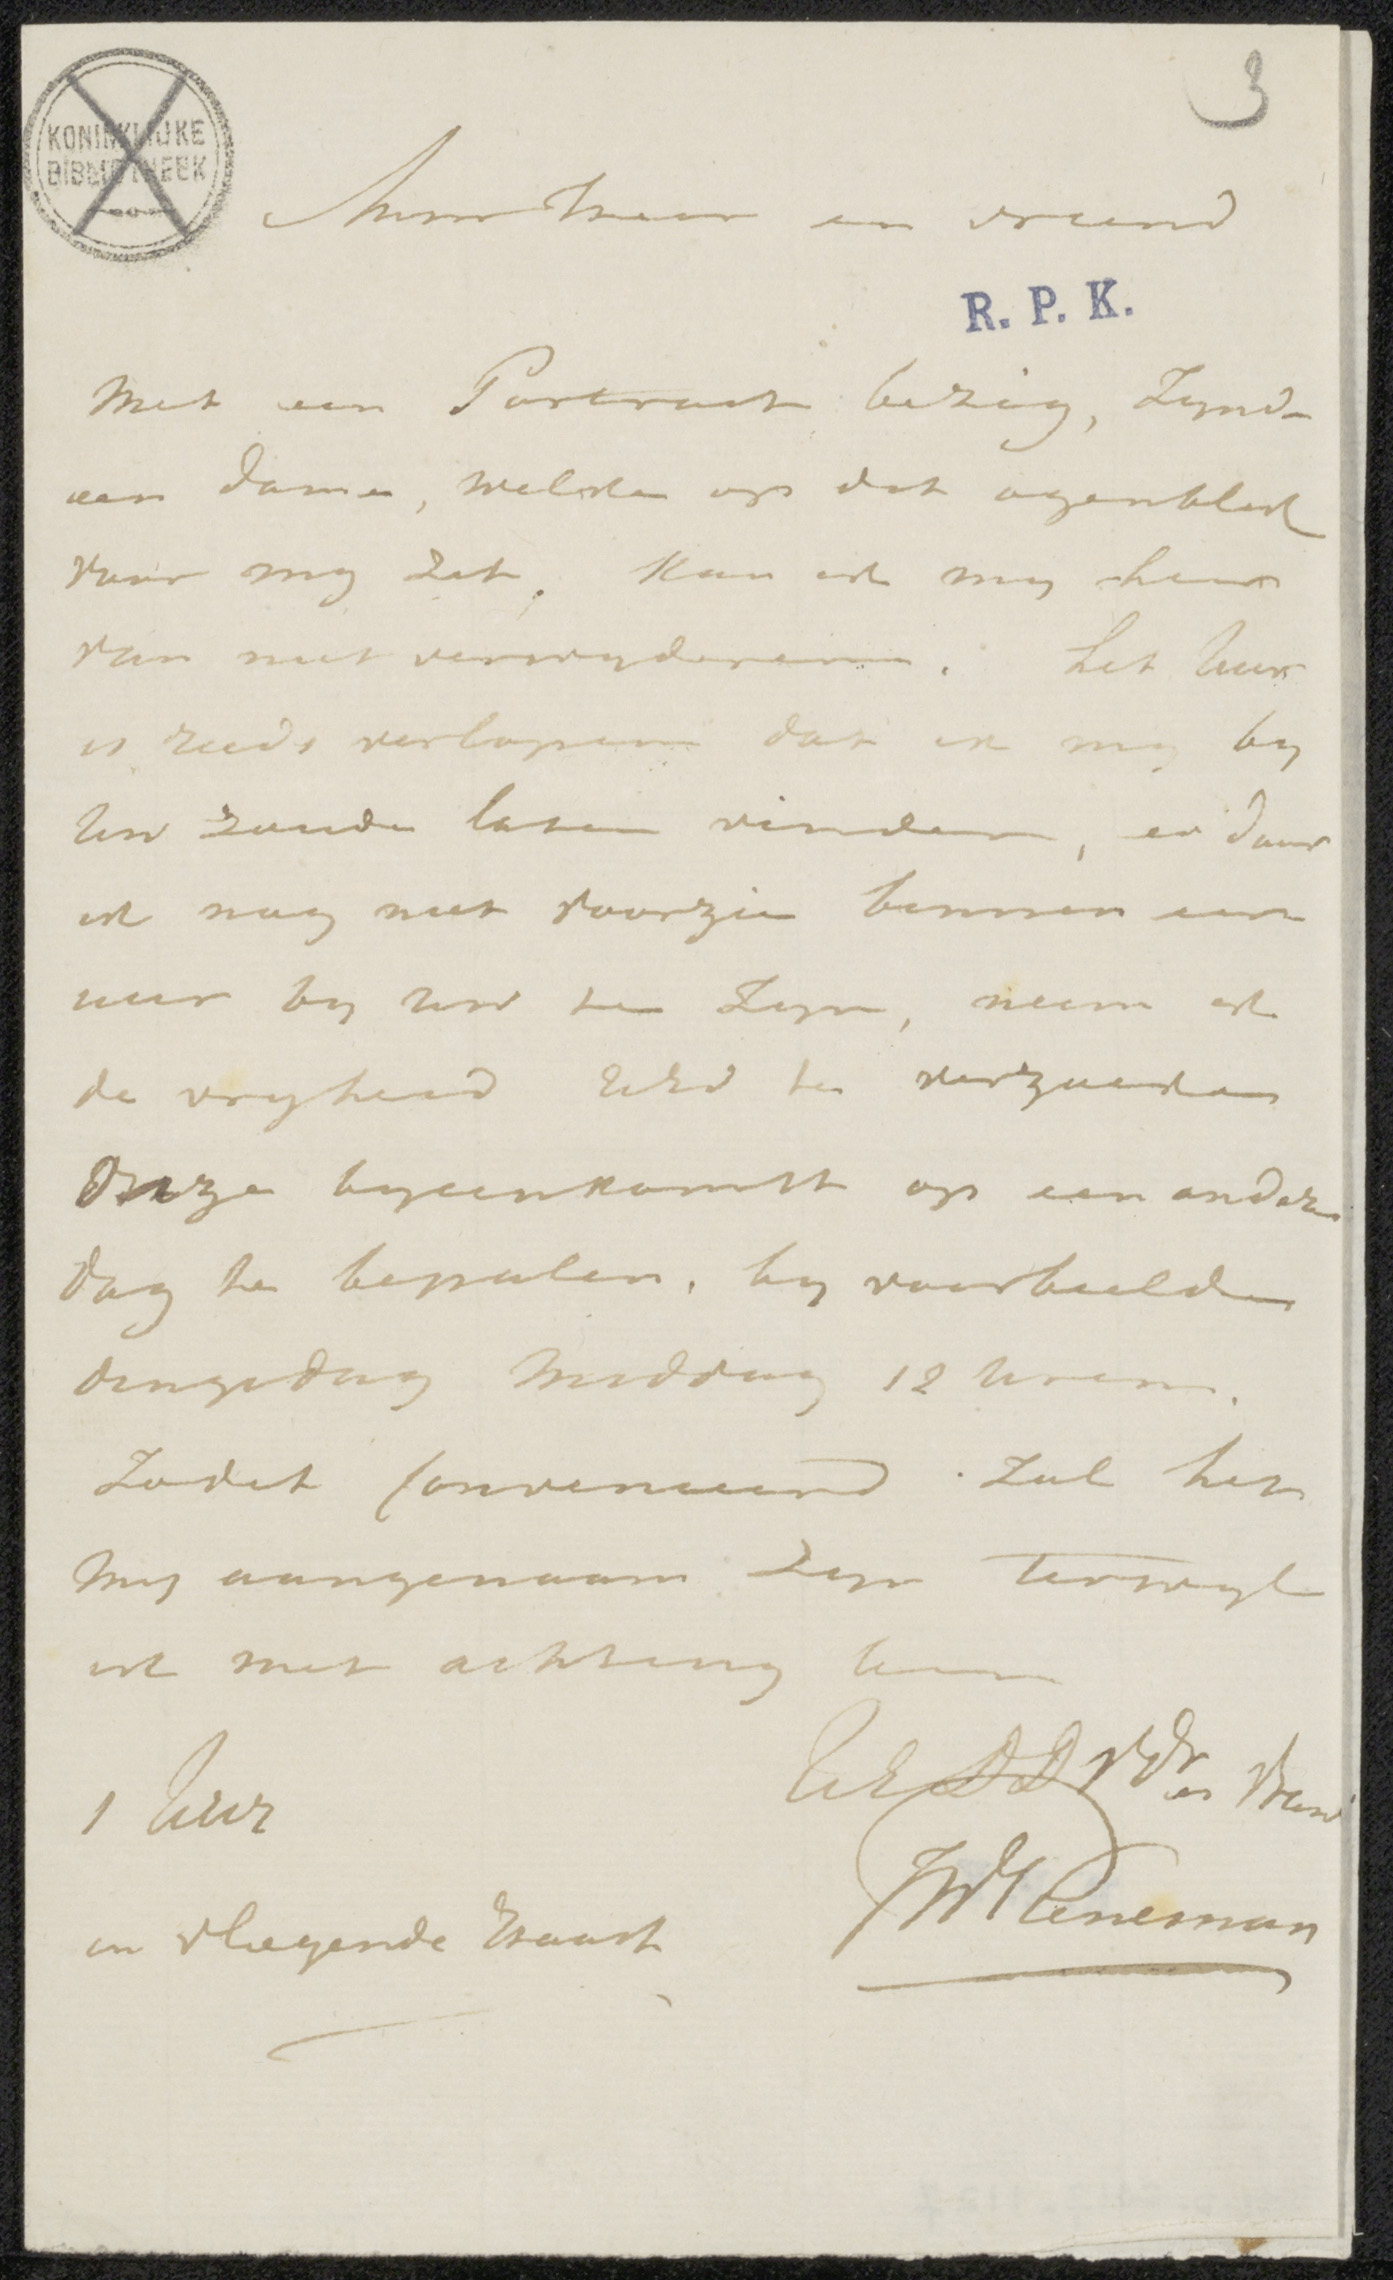 3
KONINKLIJKE
BIBLIOTHEEK
Mynn heer en vriend
R. P. K.
Met een Portrait bezig, Zynde
een dame, welke op dat ogenblik
voor my zit, kan ik my hier
van niet verwyderen. het Uur
is reeds verlopen dat ik my by
Uw zoude laten vinden, en daar
ik nog niet voorzie binnen een
uur by Uw te Zyn, neem ik
de vryheid UEd te verzoeken
Onze byeenkomst op een andere
dag te bepalen. by voorbeelde
dingsdag Middag 12 Uren.
Zodit Convenieerd Zal het
My aangenaam Zyn Terwyl
ik met achting ben
UE DD vdr en Vriend
1 Uur
JW Pieneman
in vliegende Haast